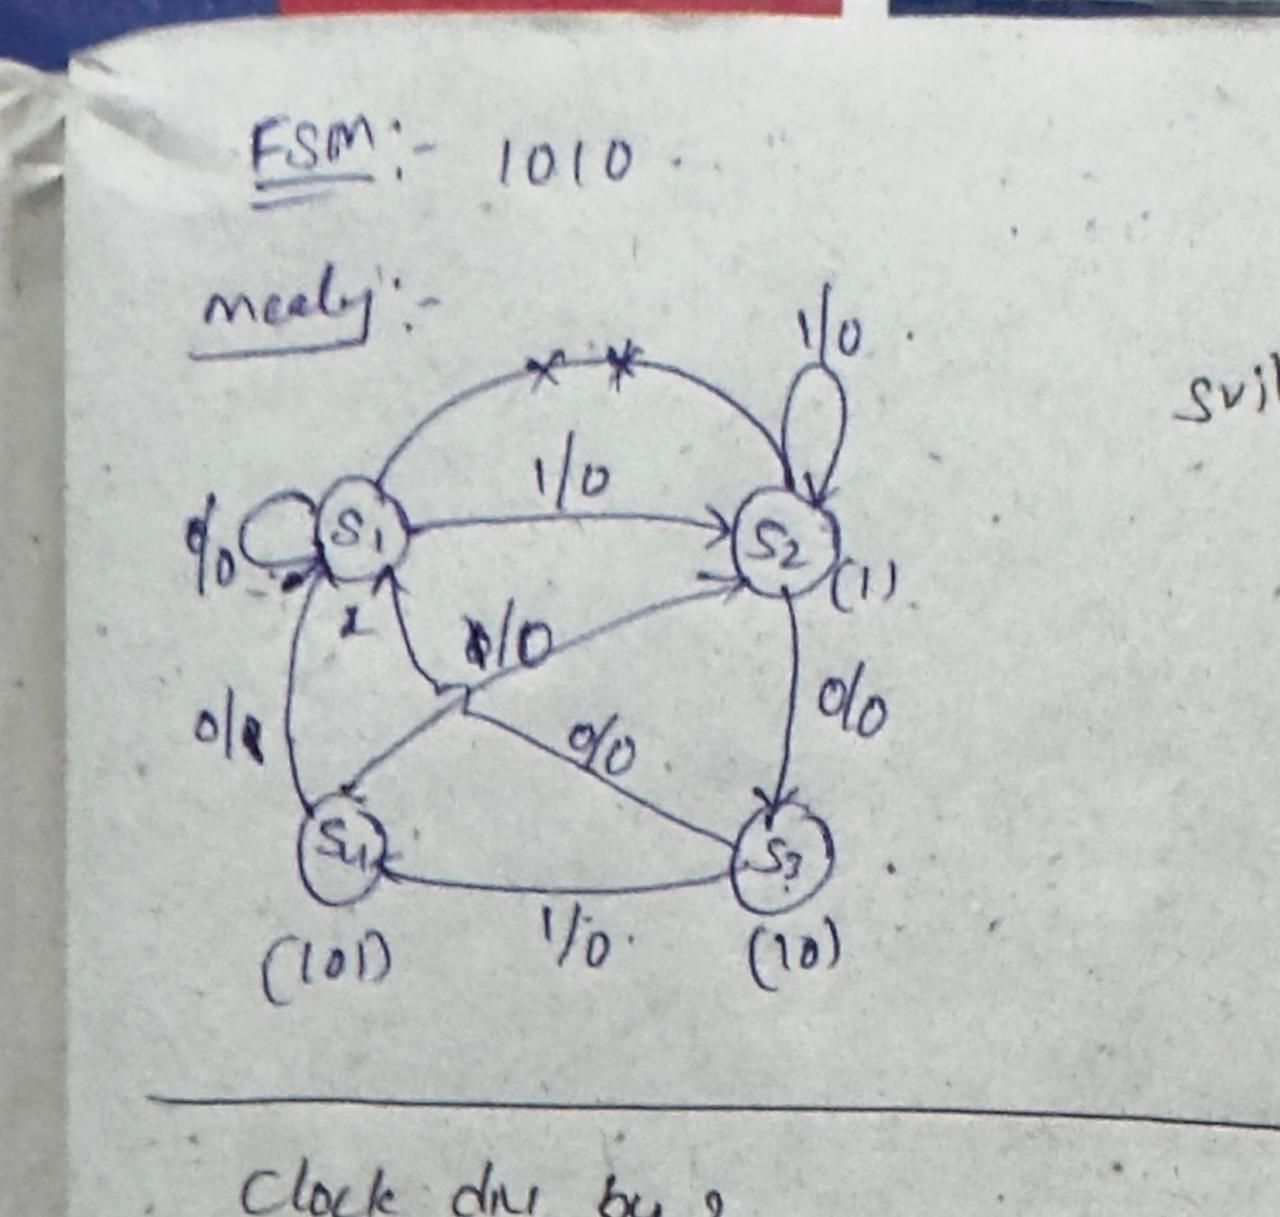 FSM:- 1010
Mealy:-
1/0
1/0
0/0
S1
S2
(1)
1/0
0/1
0/0
0/0
S4
S3
(101)
1/0
(10)
Clock div by 2